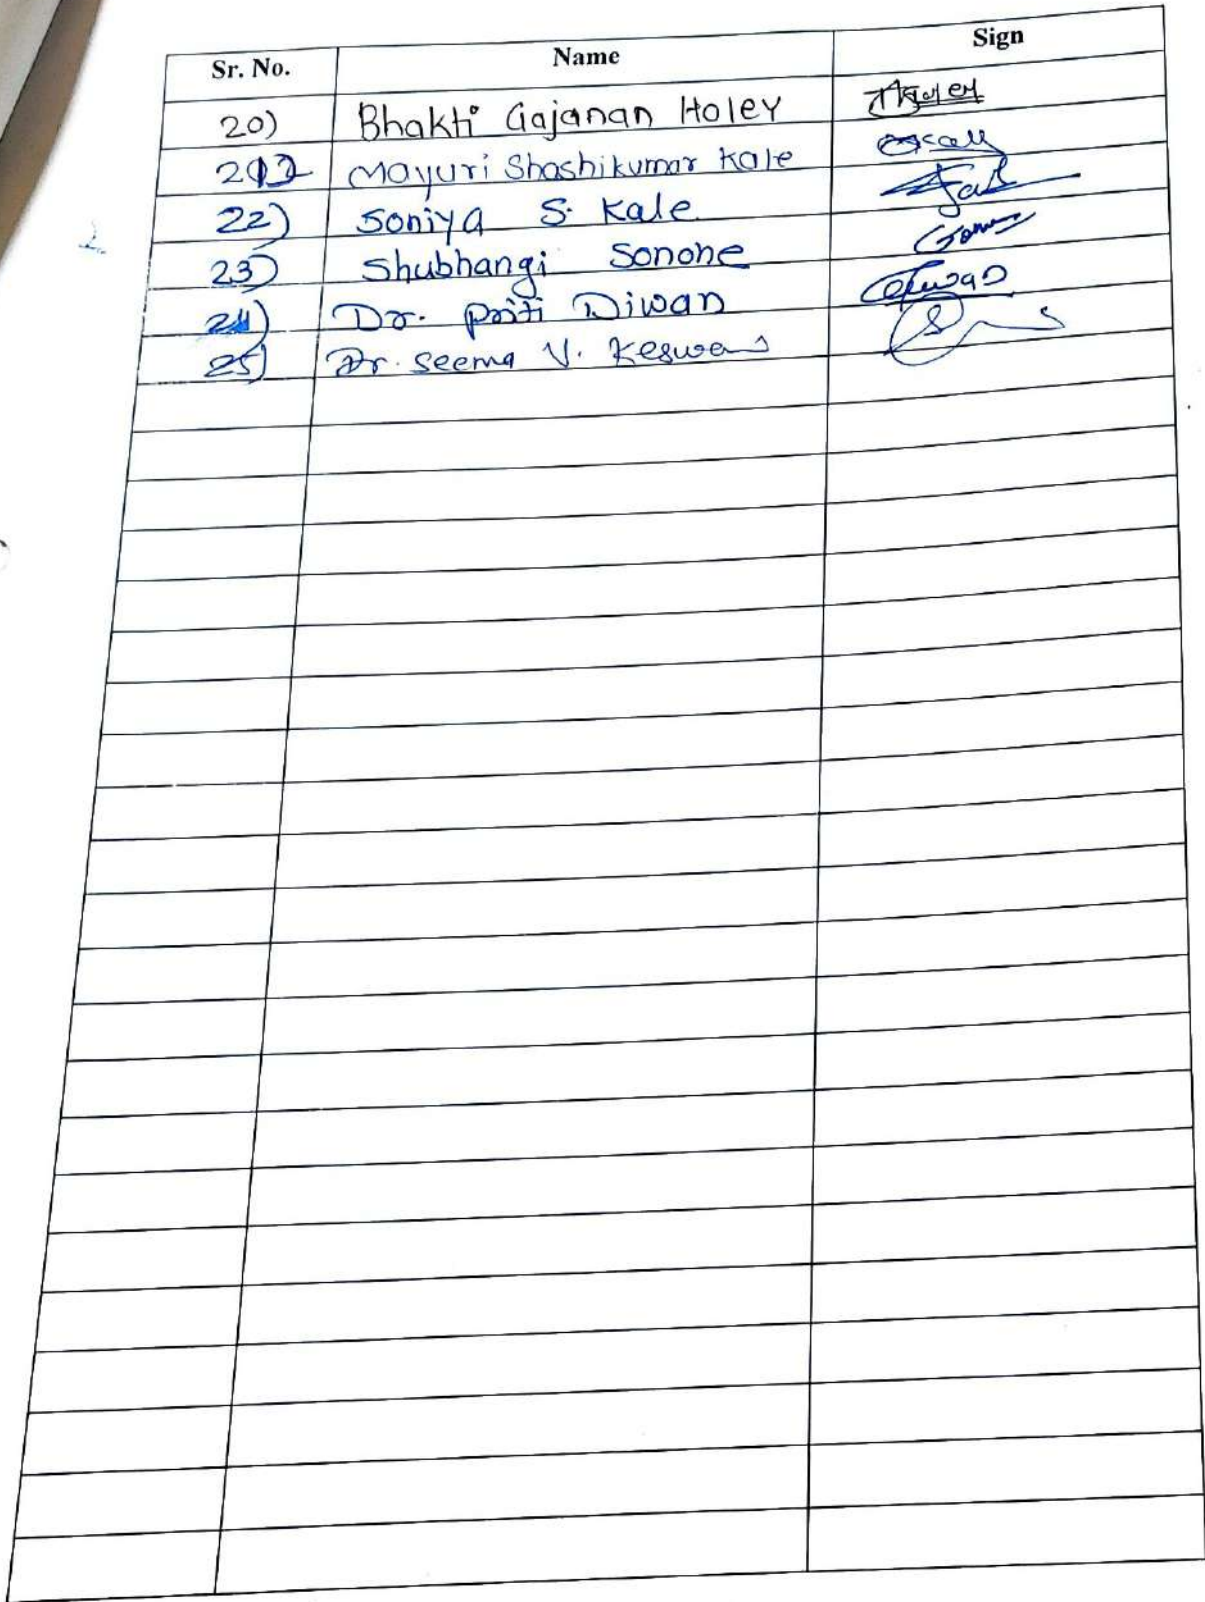 Sr. No. Name Sign
20) Bhakti Gajanan Holey
21) Mayuri Shashikumar Kale
22) Soniya S. Kale
23) Shubhangi Sonone
24) Dr. Priti Diwan
25) Dr. Seema V. Keswani